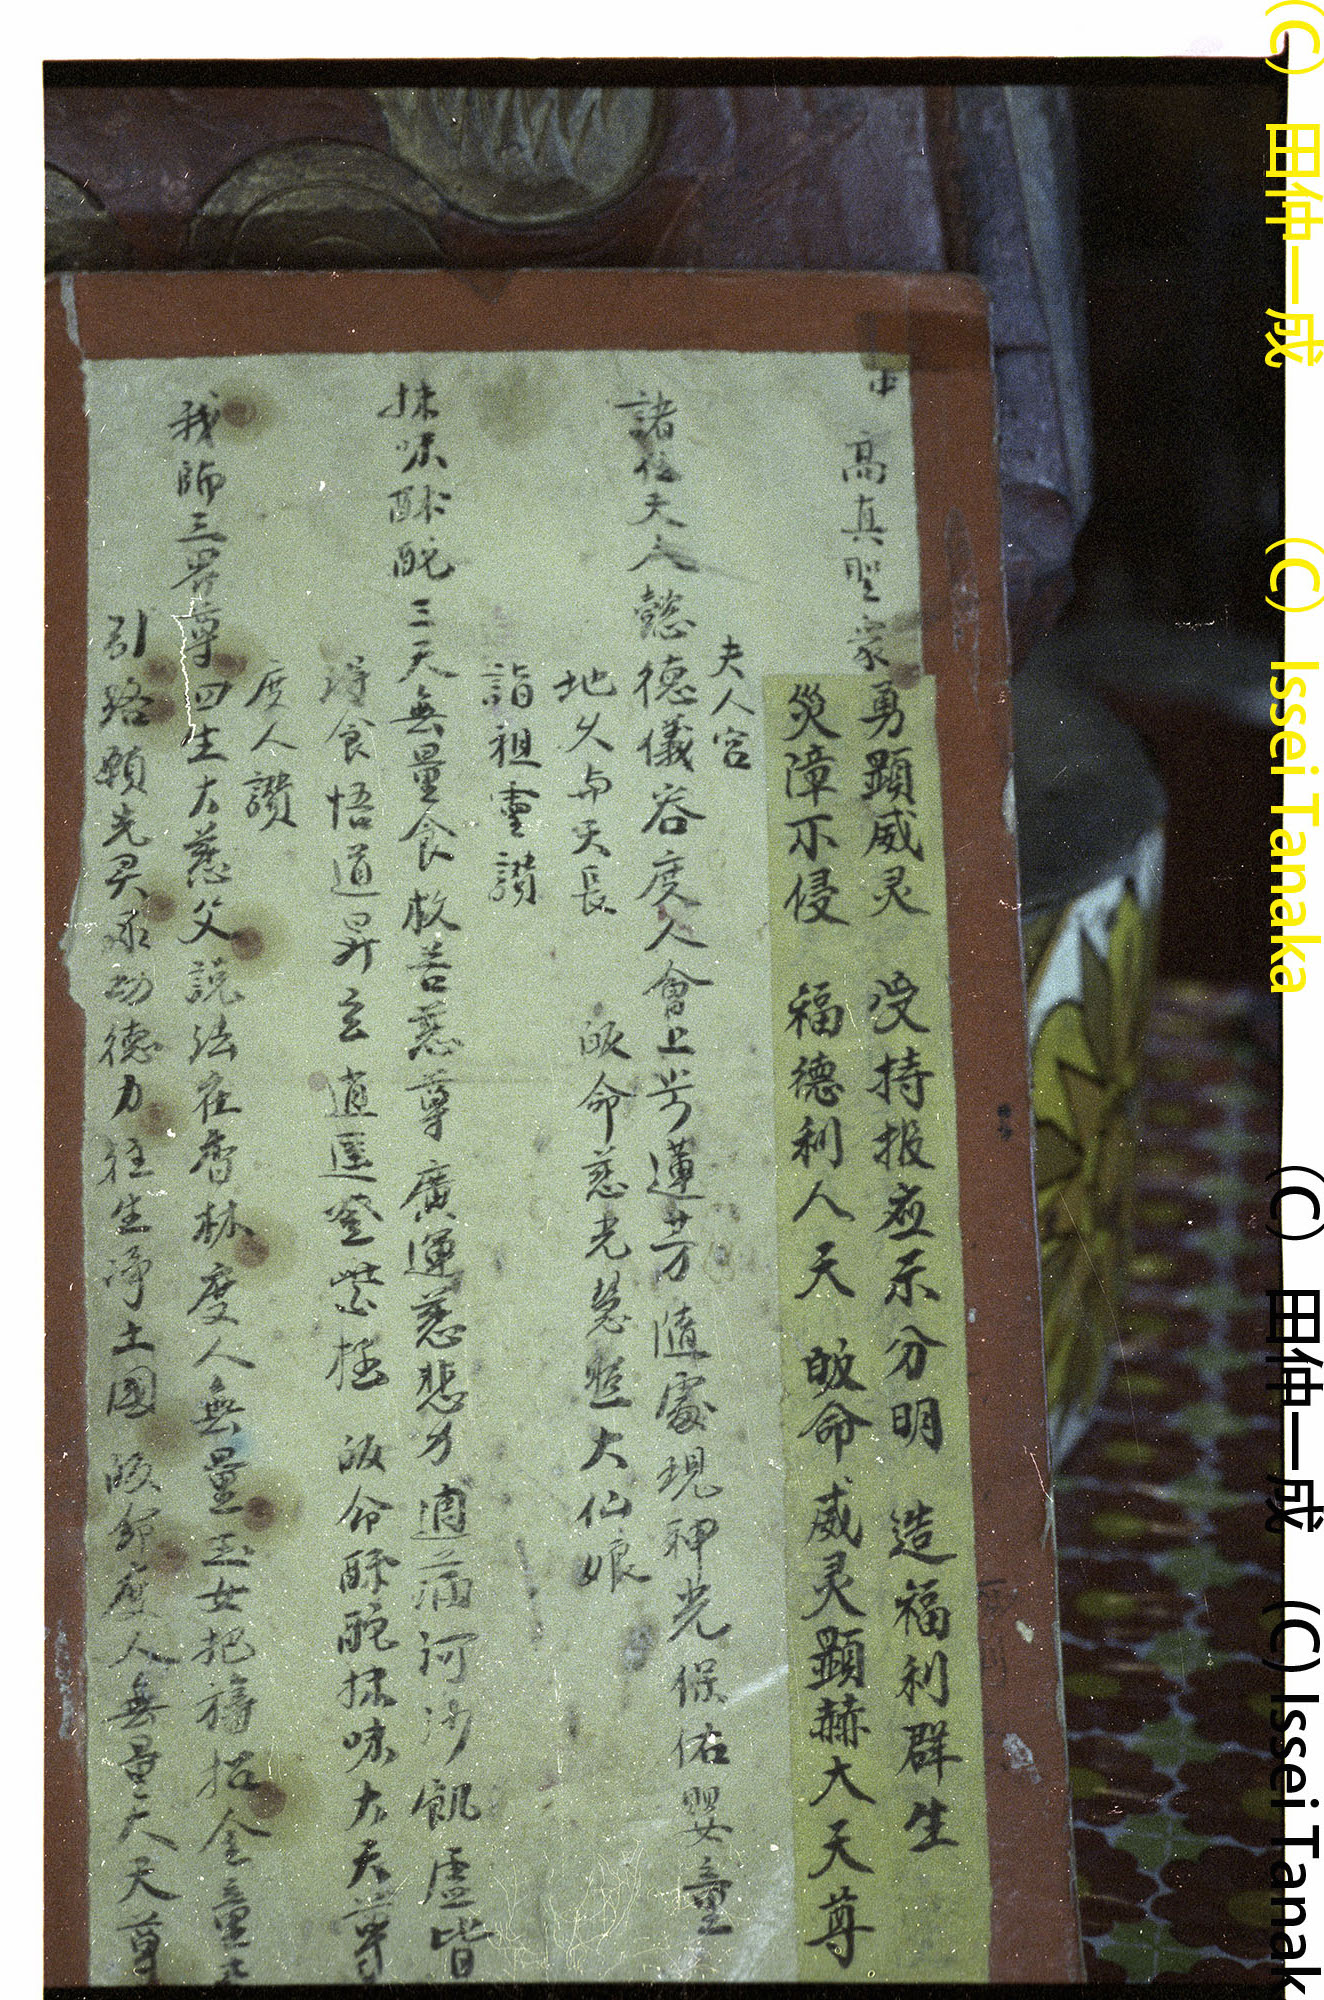 高真聖衆勇顯威灵 受持报應示分明 造福利群生
災障不侵 福德利人天 皈命威灵顯赫大天尊
夫人宮
諸位夫人懿德德儀容度人會上步蓮芳隨處現神光保佑嬰童
地久与天長 皈命慈光慧照大仙娘
詣祖靈讃
抹味酥酡三天無量食救苦慈尊廣運慈悲力適滿河沙飢虚皆
得食悟道昇玄逍遥登紫極 皈命酥酡抹味大天尊
度人讃
我師三界尊四生大慈父說法在香林度人無量玉女把旛招金童
引路願先灵承功德力往生净土国皈命度人無量大天尊
(C) 田仲一成 (C) Issei Tanaka (C) 田仲一成 (C) Issei Tanak